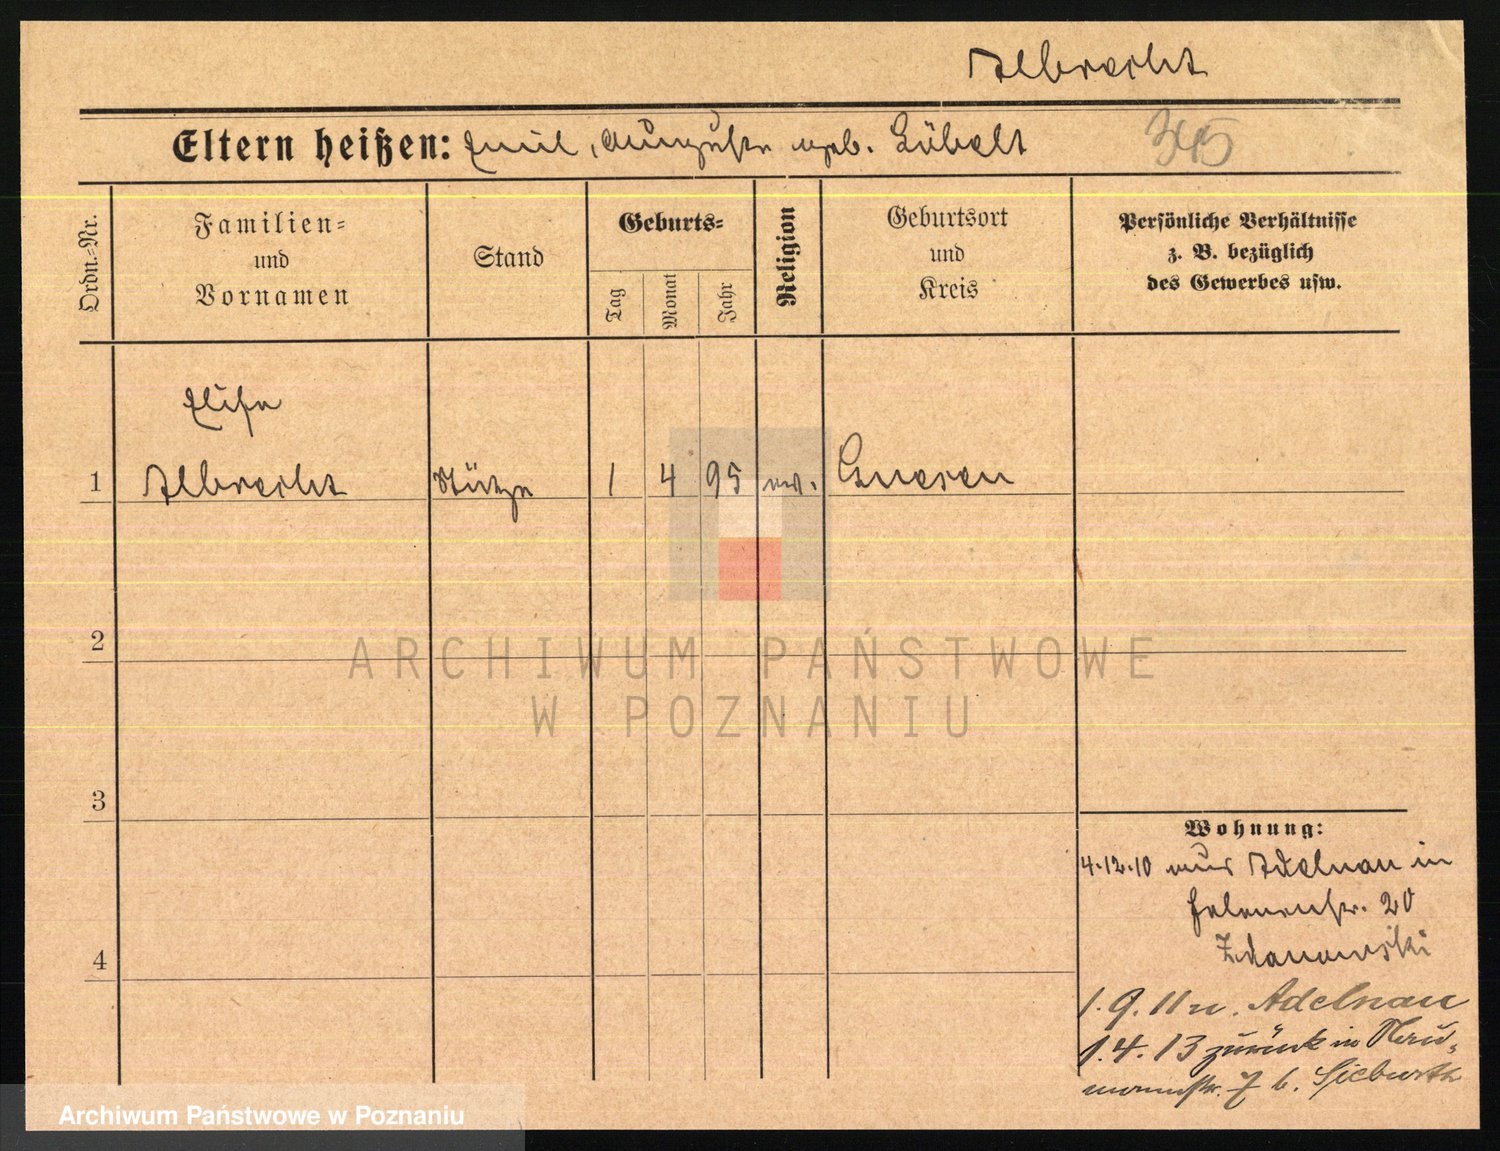 Albrecht
Eltern heißen: Emil, Auguste geb. Lübelt
345
Ordn.-Nr.
Familien-
und
Vornamen
Stand
Geburts-
Tag
Monat
Jahr
Religion
Geburtsort
und
Kreis
Persönliche Verhältnisse
z. B. bezüglich
des Gewerbes usw.
Elise
1 Albrecht Stütze 1 4 95 ev. Gnesen
2
3
4
Wohnung:
4.12.10 aus Adelnau in
Helenenstr. 20
Zdanowski
1.9.11 n. Adelnau
1.4.13 zurück in Nau-
mannstr. 7 b. Sieburth
ARCHIWUM PAŃSTWOWE
W POZNANIU
Archiwum Państwowe w Poznaniu